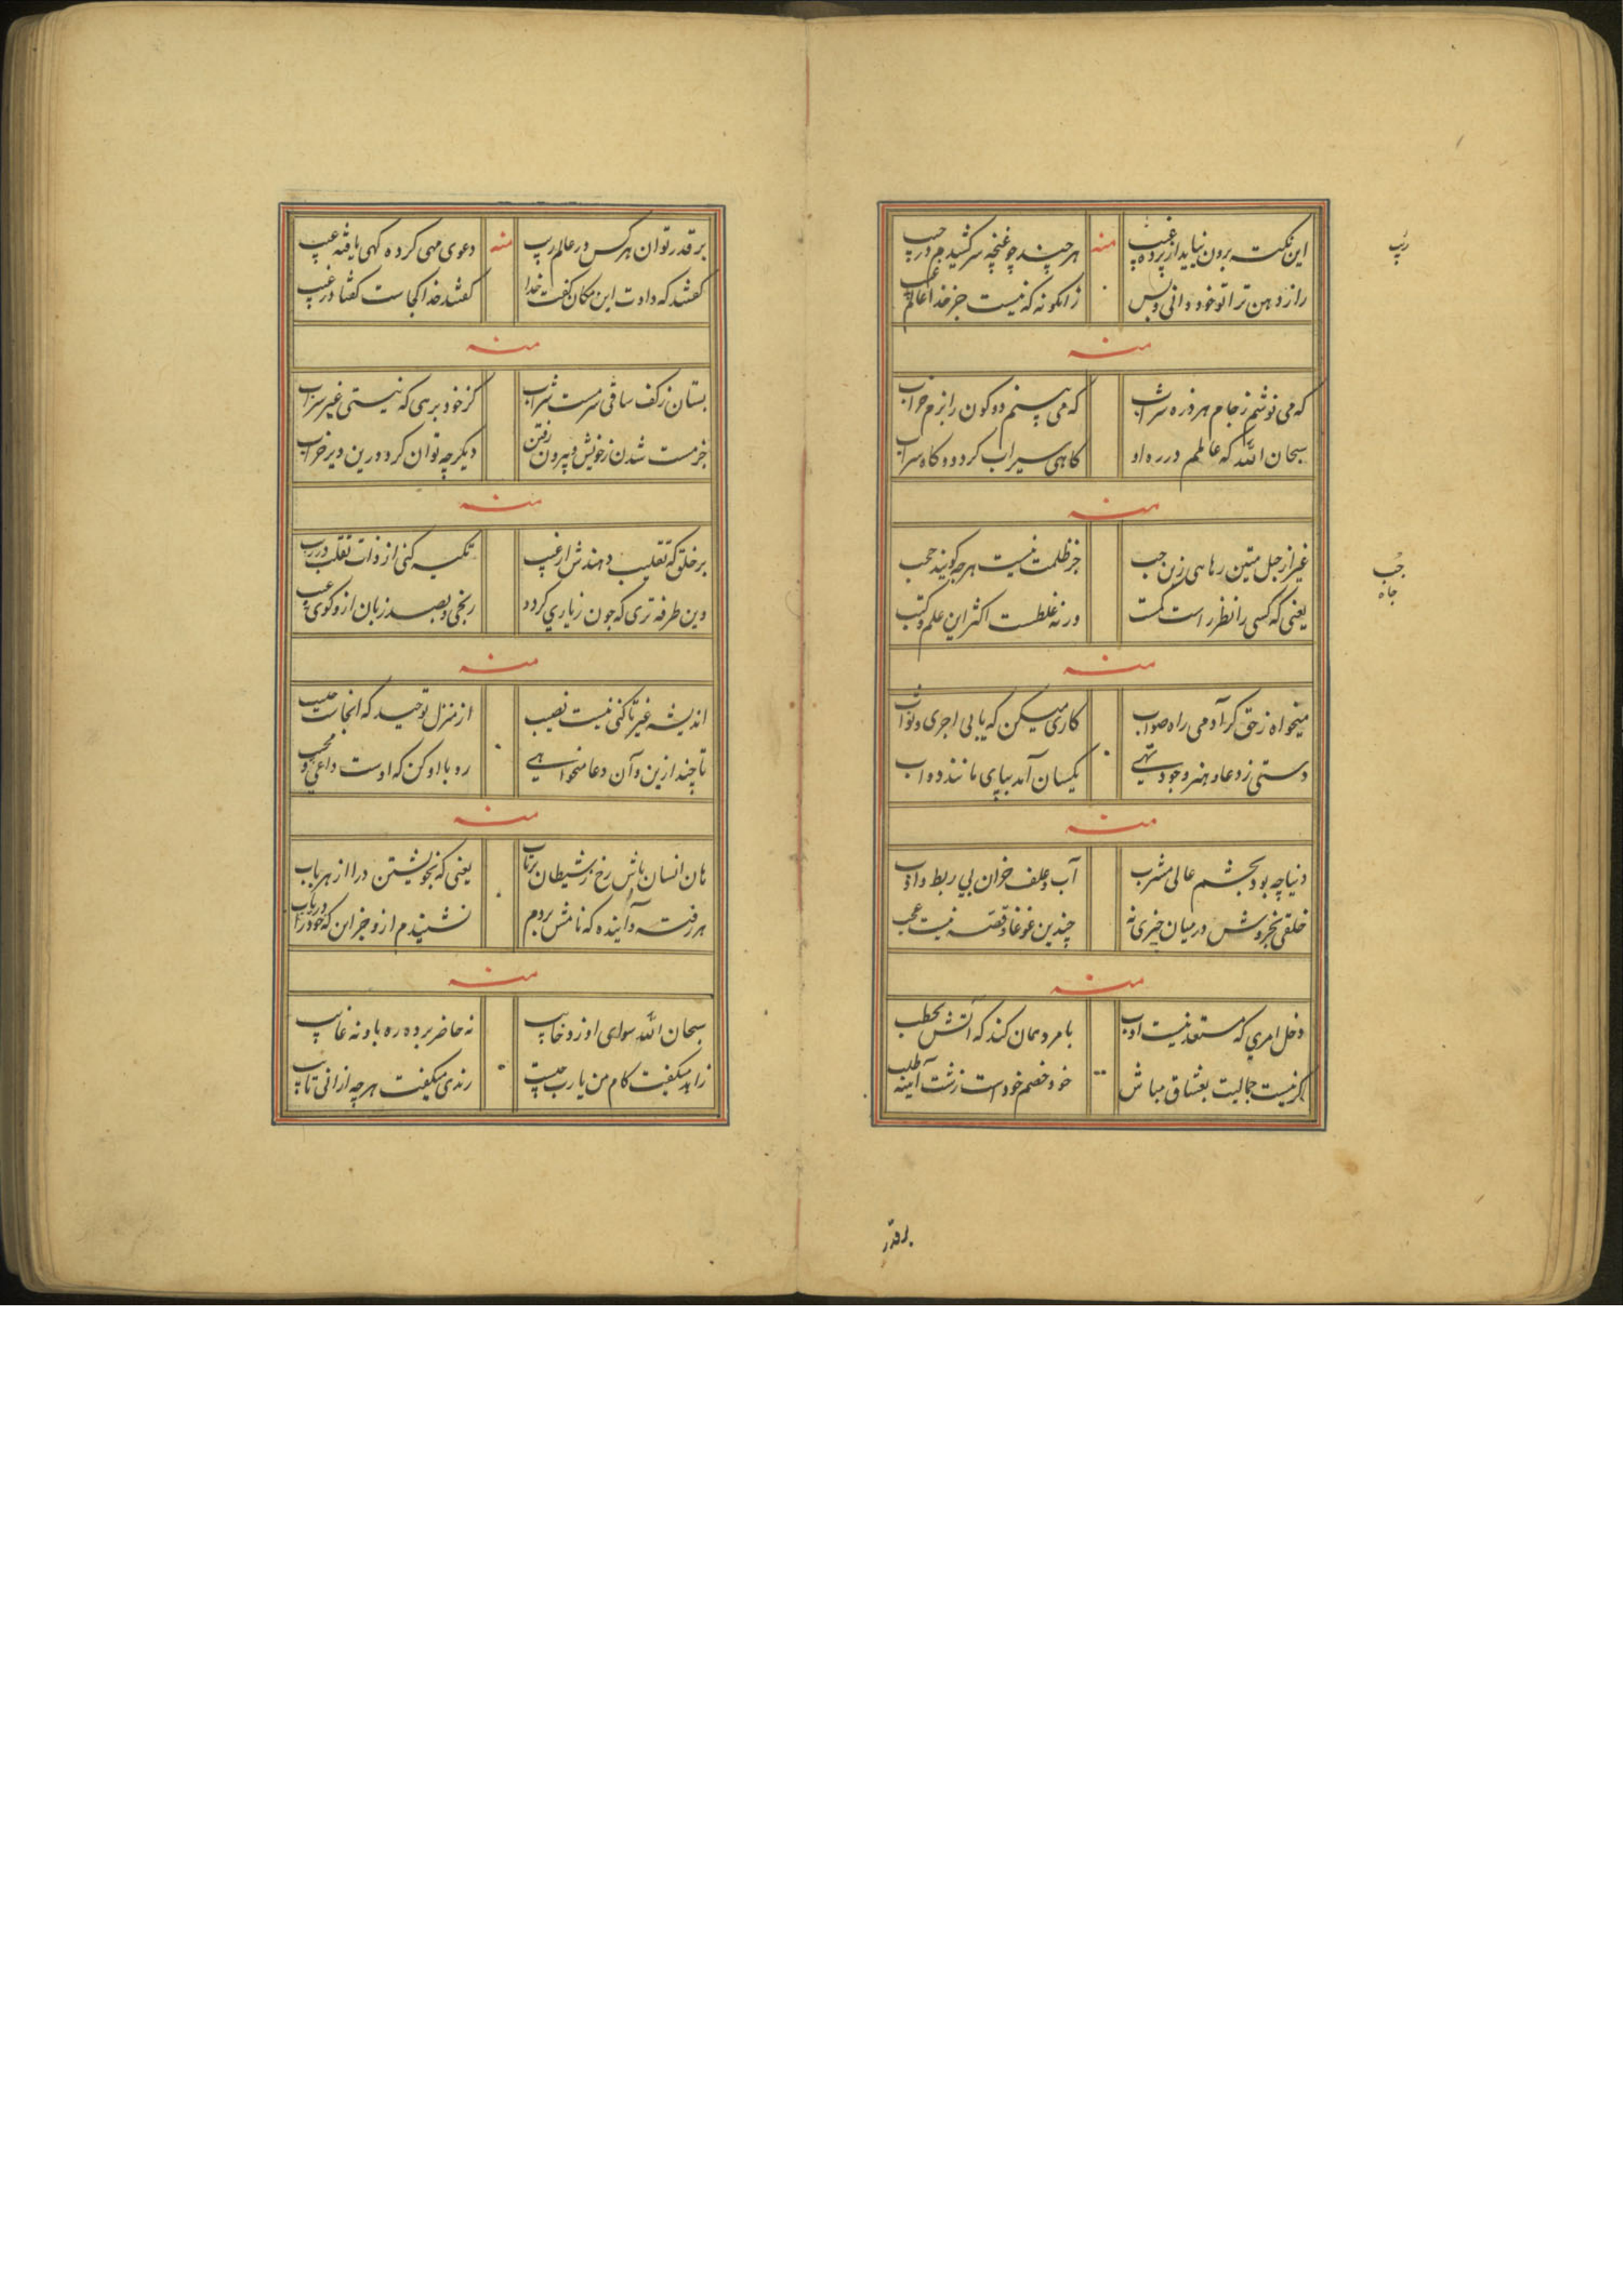 این نکته برون نیاید از پرده غیب
منه
هر چند چو غنچه سر کشیدم در جیب
راز دهن ترا تو خود دانی و بس
زانگونه که نیست جز خدا عالم غیب
منه
که می نوشم ز جام هر ذره شراب
که می بینم دو کون را بزم خراب
سبحان الله که عالمم در ره او
کاهی سیراب کردد و کاه سراب
منه
غیر از حبل متین رهاهی زین جب
جز ظلمت نیست هرچه کویند حجب
یعنی که کسی را نظر راست کمست
ورنه غلطست اکثر این علم و کتب
منه
میخواه ز حق کر آدمی راه صواب
کاری میکن که یابی اجری و ثواب
دستی ز دعا و هنر و جود تهی
یکسان آمد بپای مانند دواب
منه
دنیا چه بود بچشم عالی مشرب
آب و علف خران بی ربط و ادب
خلقی بخروش در میان چیزی نه
چندین غوغا و قصه نیست عجب
منه
دخل امری که مستعد نیست ادب
با مرد همان کند که آتش بحطب
کر نیست جمالیت بعشاق مباش
خود خصم خودست زشت آئینه طلب
ریب
جب
چاه
بر قدر
بر قدر توان هر کس در عالم ریب
منه
دعوی مهی کرده کهی یافته عیب
کفتند که دادت این مکان کفت خدا
کفتند خدا کجاست کفتا در غیب
منه
بستان ز کف ساقی سرمست شراب
کز خود برهی که نیستی غیر سراب
جز مست شدن ز خویش و بیرون رفتن
دیگر چه توان کرد درین دیر خراب
منه
بر خلق که تقلیب دهندش از غیب
تکیه کنی از ذات تقلب در ریب
وین طرفه تری که چون زیاری کردد
رنجی و بصد زبان ازو کوی عیب
منه
اندیشه غیر تا کنی نیست نصیب
از منزل توحید که انجاست حبیب
تا چند ازین و آن دعا میخواهی
رو با او کن که اوست داعی و مجیب
منه
هان انسان باش رخ ز شیطان برتاب
یعنی که بخویشتن درا از هر باب
هر رفته و آینده که نامش بردم
نشنیدم ازو جز این که خود را دریاب
منه
سبحان الله سوای او زد خایب
نه حاضر برده ره باو نه غایب
زاهد میکفت کام من یا رب چیست
رندی میکفت هرچه از انی تایب